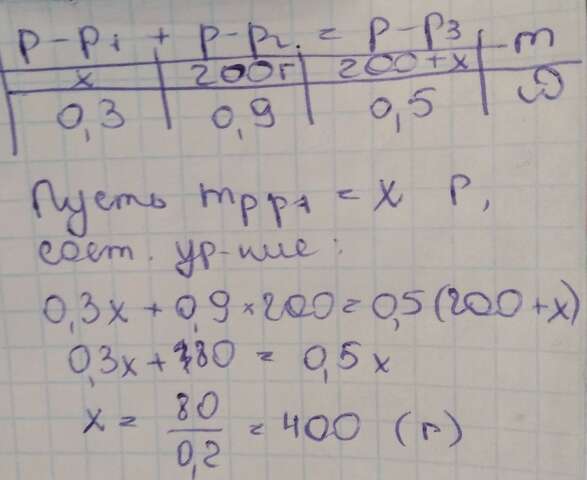 р-р₁ + р-р₂ = р-р₃ m
x 200г 200+x
0,3 0,9 0,5 ω
Пусть mрр₁ = x г,
сост. ур-ние:
0,3x + 0,9 × 200 = 0,5(200+x)
0,3x + 80 = 0,5x
x = 80/0,2 = 400 (г)